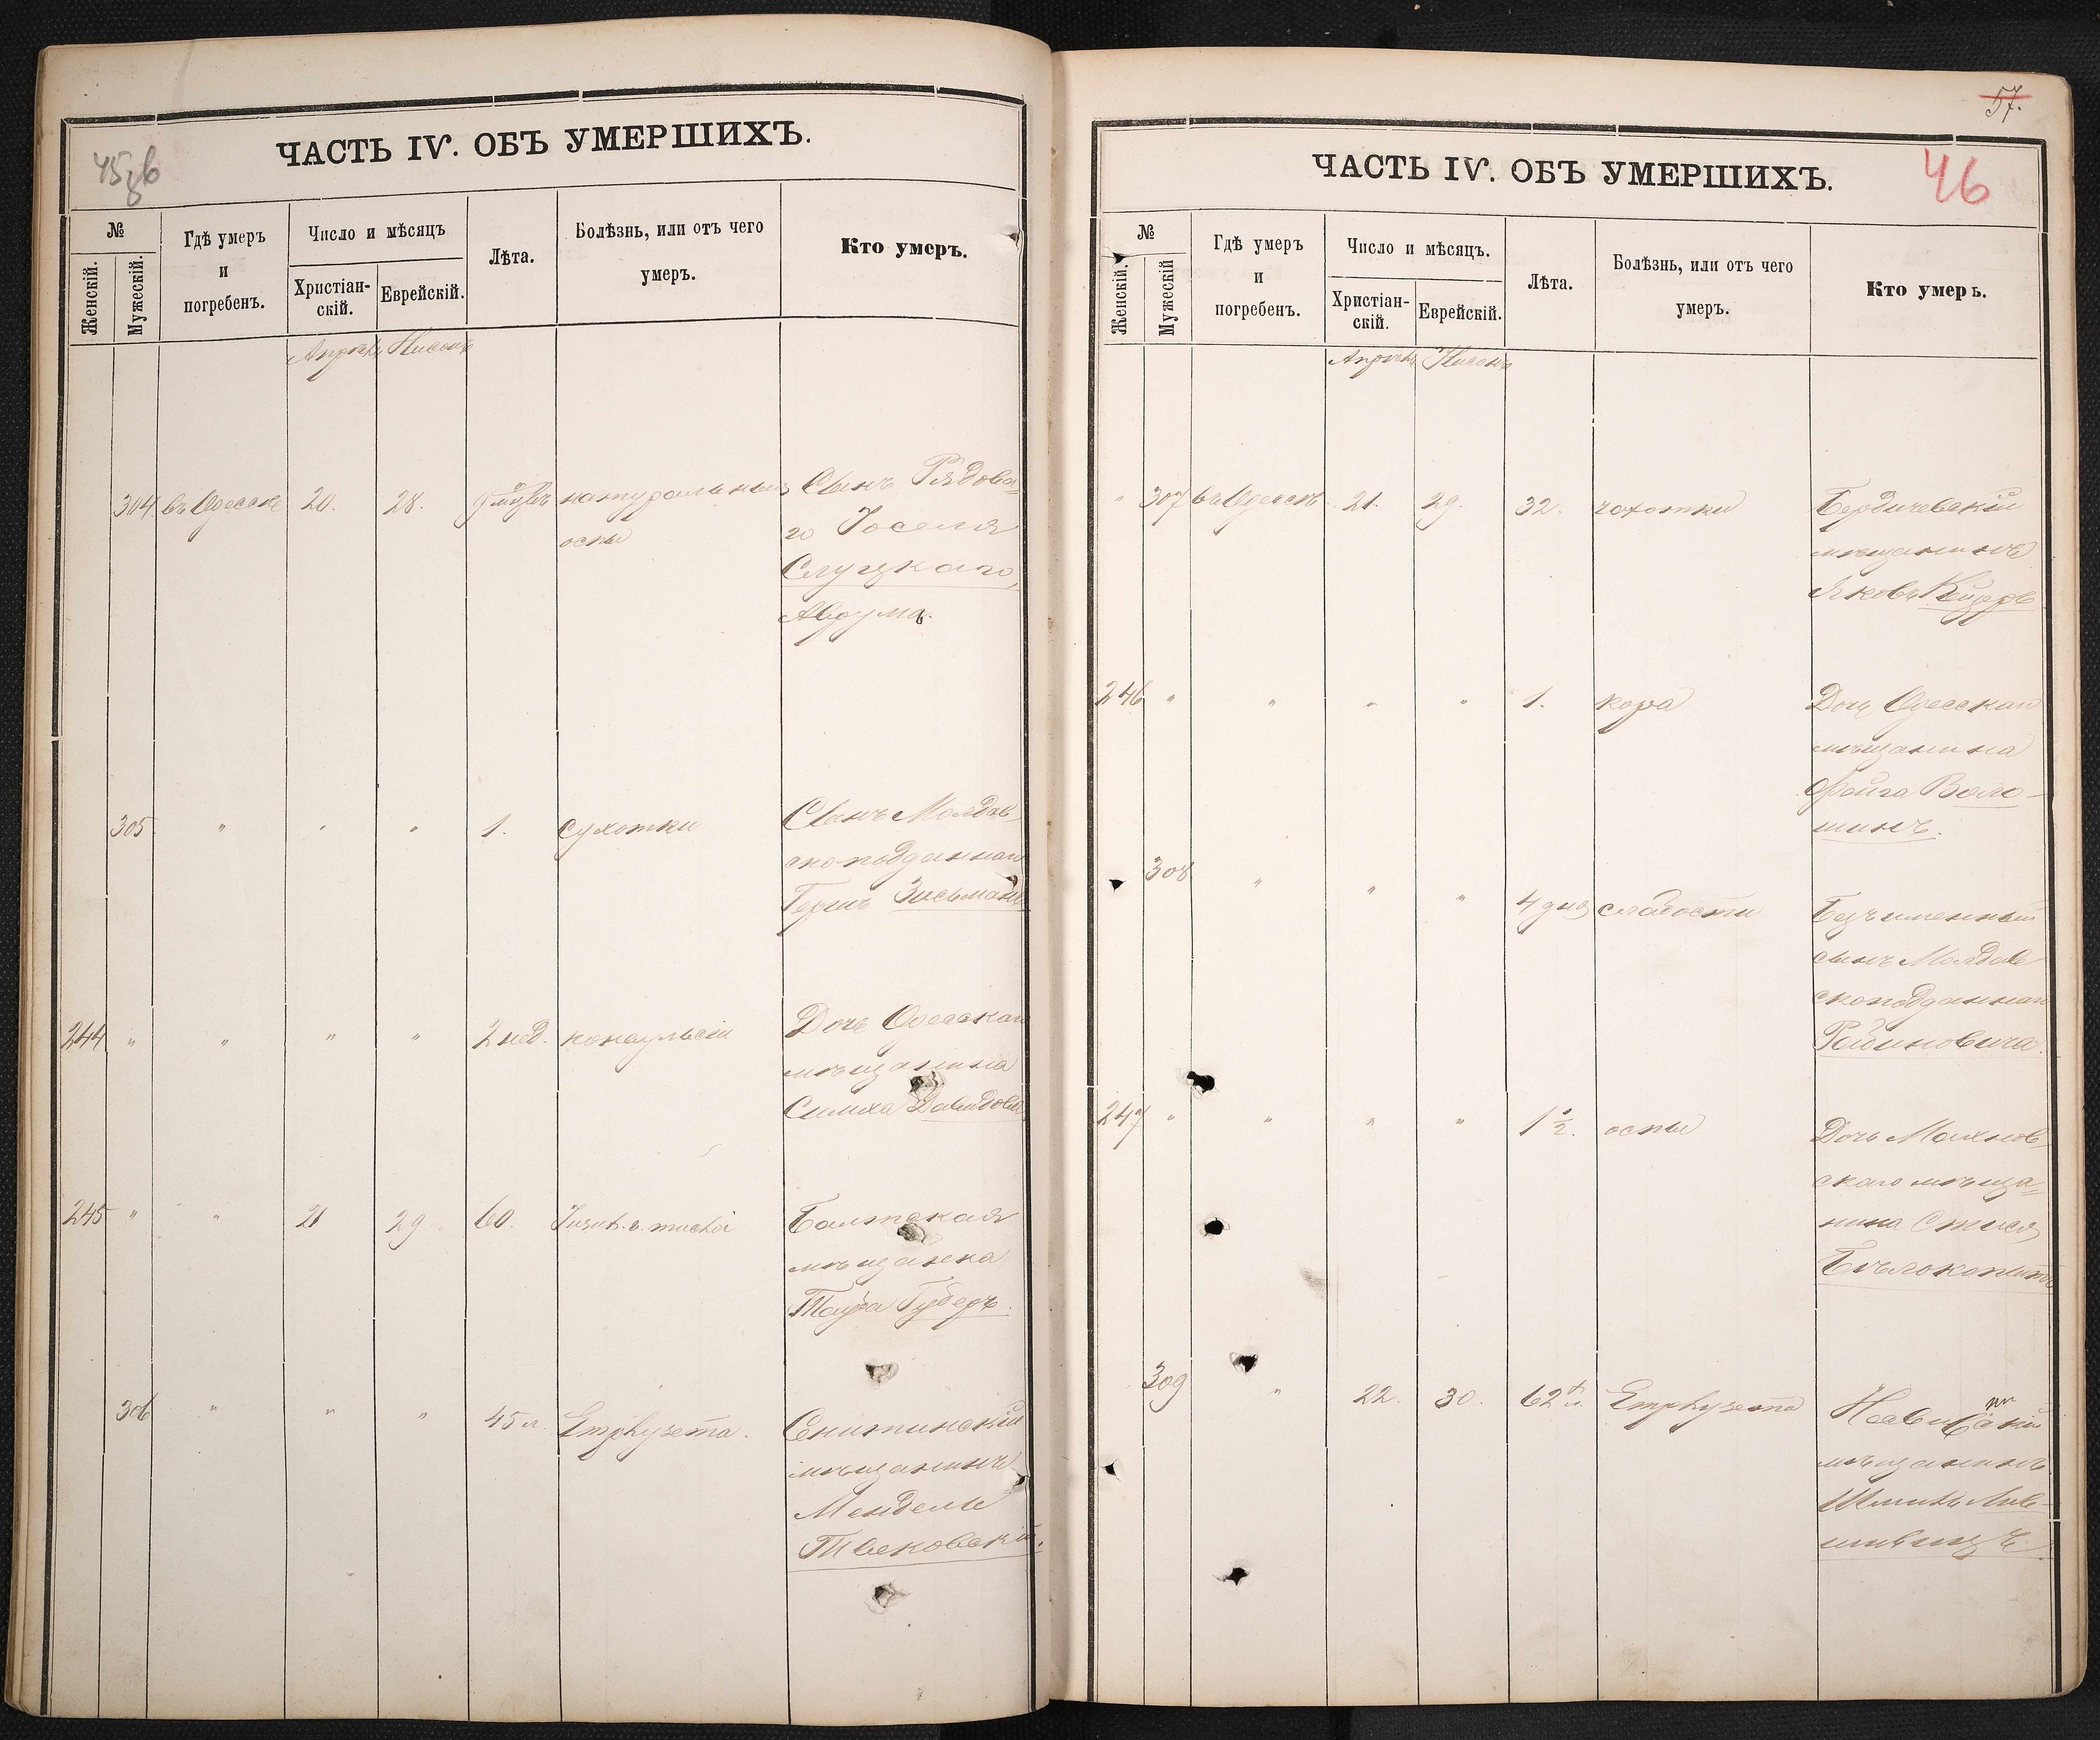 ЧАСТЬ IV. ОБЪ УМЕРШИХЪ.
№
Женскій.
Мужескій.
Гдѣ умеръ
и
погребенъ.
Число и мѣсяцъ
Христіан-
скій.
Еврейскій.
Лѣта.
Болѣзнь, или отъ чего
умеръ.
Кто умеръ.
Апрѣль Нисонъ
304. въ Одессѣ 20. 28. натуральный Сынъ Рядова=
оспы го Іоселя
Слуцкаго,
Аврума.
305 " " " 1. сухотки Сынъ Молдав
скоподданнаго
Гершъ Зисьманъ
244 " " " " 2 нед. конвульсіи Дочь Одесскаго
мѣщанина
Симха Давидова
245 " " 21 29. 60. Балтская
мѣщанка
Тауба Губеръ.
306 " " " 45 л. Emphysema.
мѣщанинъ
Мендель
57.
ЧАСТЬ IV. ОБЪ УМЕРШИХЪ.
46
№
Женскій.
Мужескій
Гдѣ умеръ
и
погребенъ.
Число и мѣсяцъ.
Христіан-
скій.
Еврейскій.
Лѣта.
Болѣзнь, или отъ чего
умеръ.
Кто умеръ.
Апрѣль Нисонъ
" 307 въ Одессѣ 21. 29. 32. чохотки Бердичевскій
мѣщанинъ
Яковъ
246 " " " " 1. кора Дочь Одесскаго
мѣщанина
Фейга Воло-
шинъ.
308 " " " 4 дня слабости Безъименный
сынъ Молдав
скоподданнаго
Рабиновича.
247 " " " " 1 1/2. оспы Дочь Махнов-
скаго мѣща=
нина
309 " 22. 30. 62 л. Emphysema
мѣщанинъ
Лив-
шивицъ.